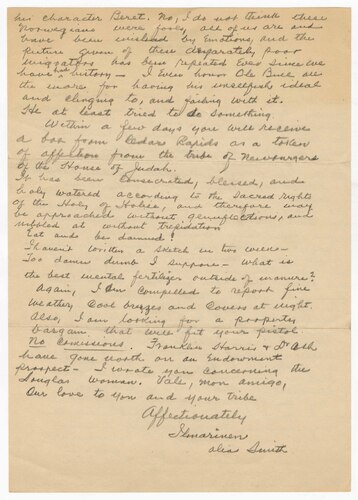 his character Beret. No, I do not think these
Norwegians were fools, all of us are and
have been misled by Emotions, and the
picture given of these desperately poor
immigrators has been repeated Ever since we
have had history — I even honor Ole Bull all
the more for having his unselfish ideal
and clinging to, and failing with it.
He at least tried to do something.
Within a few days you will receive
a box from Cedar Rapids as a token
of affection from the tribe of Newburgers
of the House of Judah.
It has been Consecrated, blessed, and
holy watered according to the Sacred Right
of the Holy of Holies, and therefore may
be approached without genuflections, and
nibbled at without trepidation
Eat and be damned!
I haven't written a Sketch in two weeks—
Too damn dumb I suppose — What is
the best mental fertilizer outside of manure?
Again, I am Compelled to report fine
Weather Cool breezes and Covers at night.
Also, I am looking for a property
bargain that will fit your pistol
No Comissions. Franklin Harris & Dr Ash
have gone north on an Endowment
prospect — I wrote you concerning the
Douglas Woman. Vale, mon amigo,
Our love to you and your tribe
Affectionately
Ilmarinen
alias Smith